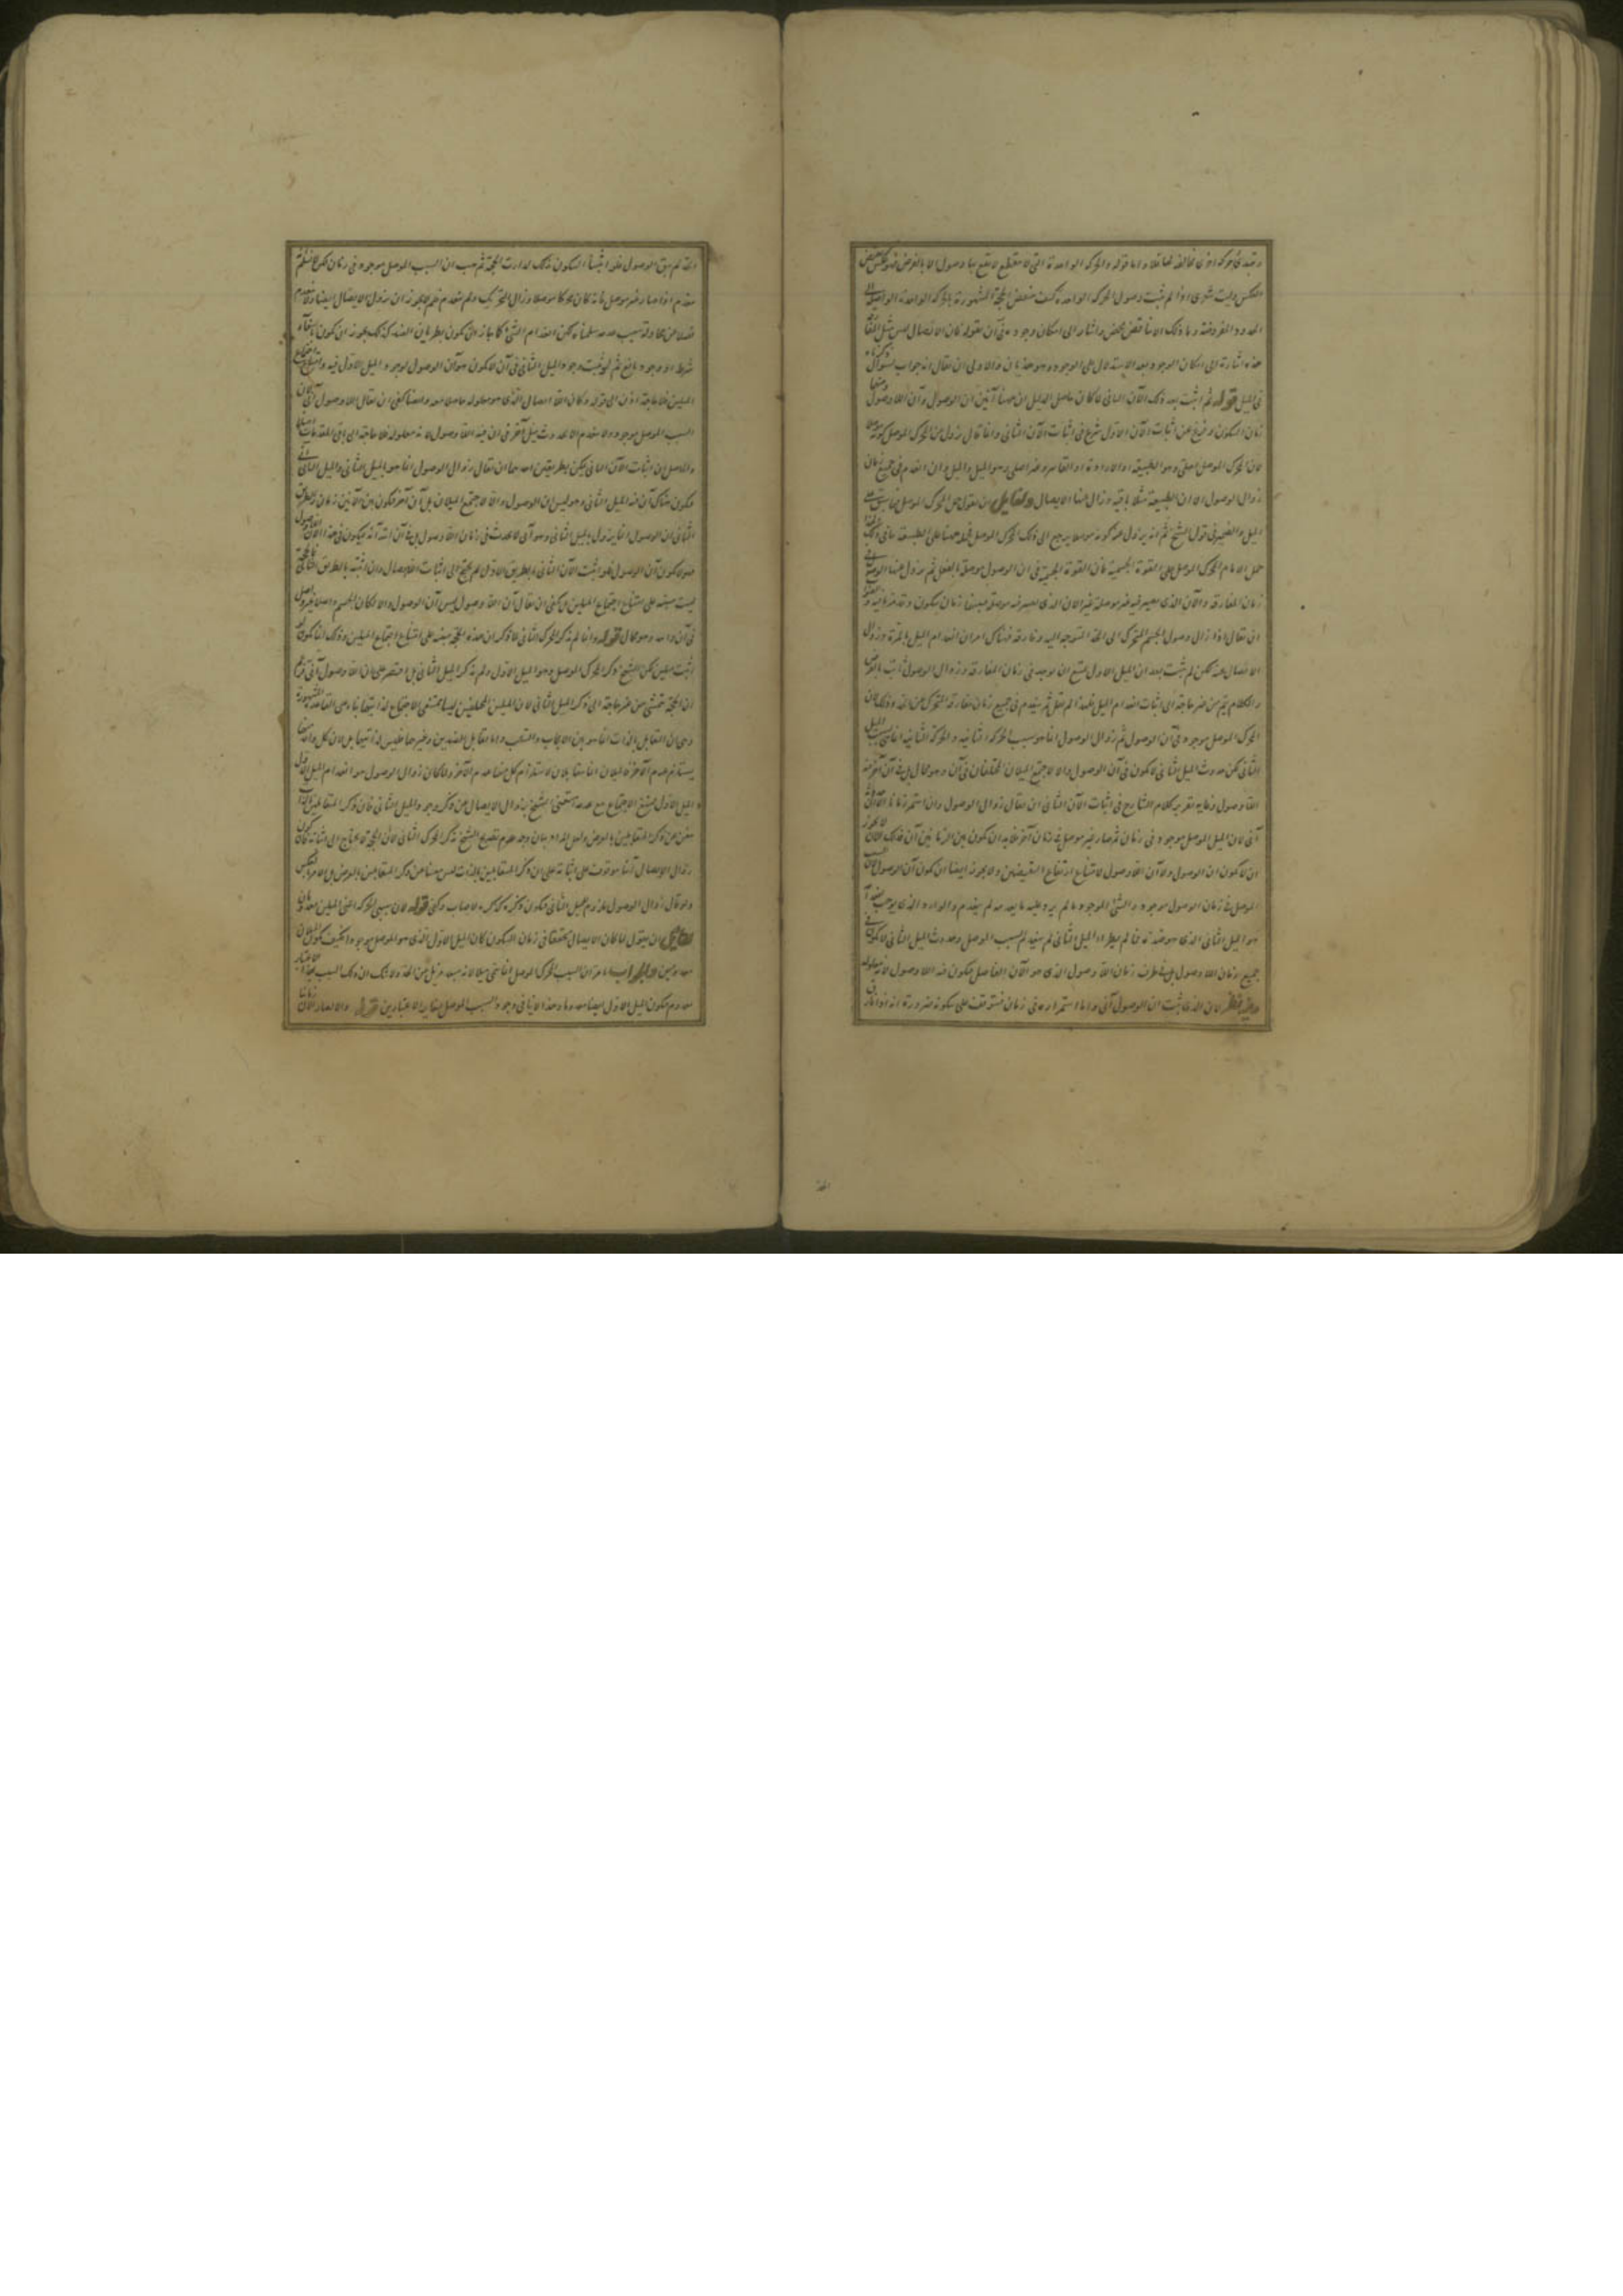 وتبتدئ حركة اخرى مخالفة لها فلا واما قوله والحركة الواحدة التى لا تنقطع لا تقع بها وصول الا بالفرض فهو
العكس وليت شعرى اذا لم يثبت وصول الحركة الواحدة كيف ينتقض الحجة المشهورة بالحركة الواحدة
الحدود المفروضة وما ذلك الا تناقض محض واشار الى امكان وجوده فى آن بقوله فان الايصال ليس مثل
هذه اشارة الى امكان الوجود بعد الاستدلال على الوجود وهو هذيان والاولى ان يقال انه جواب لسؤال
فى الميل قوله ثم اثبت بعد ذلك الآن الثانى لما كان حاصل الدليل ان ههنا آنين آن الوصول وآن اللا وصول
زمان السكون وفرغ عن اثبات الآن الاول شرع فى اثبات الآن الثانى وانما قال يزول عن المحرك الموصل كونه
لان المحرك الموصل اصلى وهو الطبيعة او الارادة او القاسر وغير اصلى وهو الميل والميل وان انعدم فى جميع زمان
زوال الوصول الا ان الطبيعة مثلا باقية وزال عنها الايصال ولقائل ان يقول حمل المحرك الموصل فيما سبق على
الميل والضمير فى قول الشيخ ثم انه يزول عنه كونه موصلا يرجع الى ذلك المحرك الموصل
حمل الامام المحرك الموصل على القوة الجسمية فان القوة الجسمية فى آن الوصول موصلة بالفعل ثم يزول عنها
زمان المفارقة والآن الذى يصير فيه غير موصلة غير الآن الذى يصير فيه موصلة فبينهما زمان سكون
ان يقال اذا زال وصول الجسم المتحرك الى الحد المتوجه اليه وفارقه فهناك امران انعدام الميل بالمرة وزوال
الايصال عنه لكن لم يثبت بعد ان الميل الاول يمتنع ان يوجد فى زمان المفارقة وزوال الوصول ثابت
والكلام يتم من غير حاجة الى اثبات انعدام الميل فلهذا لم يقل ثم ينعدم فى جميع زمان مفارقة المتحرك عن الحد وذلك لان
المحرك الموصل موجود فى آن الوصول ثم زوال الوصول انما هو بسبب الحركة الثانية والحركة الثانية انما هى بسبب الميل
الثانى لكن حدوث الميل الثانى لا يكون فى آن الوصول والا لاجتمع الميلان المختلفان فى آن وهو محال بل فى آن آخر
اللا وصول وغاية تقرير كلام الشارح فى اثبات الآن الثانى ان يقال زوال الوصول وان استمر زمانا
آنى لان الميل الموصل موجود فى زمان ثم صار غير موصل فى زمان آخر فلا بد ان يكون بين الزمانين آن فذلك الآن
ان لا يكون آن الوصول ولا آن اللا وصول لامتناع ارتفاع النقيضين ولا يجوز ايضا ان يكون آن الوصول
الموصل فى زمان الوصول موجود والشئ الموجود ما لم يرد عليه ما يعدمه لم ينعدم والوارد الذى يوجب
هو الميل الثانى الذى هو ضده فما لم يطرء الميل الثانى لم ينعدم السبب الموصل وحدوث الميل الثانى لا يكون
جميع زمان اللا وصول بل فى طرف زمان اللا وصول الذى هو الآن الفاصل فيكون فيه اللا وصول لانه معلوله
وفيه نظر لان الذى يثبت ان الوصول آنى واما استمراره فى زمان فمتوقف على سكونه ضرورة انه
الحد لم يبق الوصول فلو اثبتنا السكون بذلك لدارت الحجة ثم هب ان السبب الموصل موجود فى زمان لكن لا نسلم
ينعدم اذا صار غير موصل فانه كان محركا موصلا وزال التحريك ولم ينعدم فلم لا يجوز ان يزول الايصال ايضا ولا ينعدم
فضلا عن محاولة سبب عدمه سلمناه لكن انعدام الشئ كما جاز ان يكون بطريان الضد كذلك يجوز ان يكون
شرط او وجود مانع ثم لو ثبت وجود الميل الثانى فى آن لا يكون هو آن الوصول لوجود الميل الاول فيه وامتناع
الميلين فلا حاجة اذن الى قوله وكان اللا ايصال الذى هو معلوله حاصلا معه وايضا يكفى ان يقال اللا وصول
السبب الموصل موجود ولا ينعدم الا بحدوث ميل آخر فى آن فيه اللا وصول لانه معلوله فلا حاجة الى باقى المقدمات
والحاصل ان اثبات الآن الثانى يمكن بطريقين احدهما ان يقال زوال الوصول انما هو بالميل الثانى والميل الثانى
فيكون هناك آن فيه الميل الثانى وهو ليس آن الوصول والا لاجتمع الميلان بل آن آخر فيكون بين الآنين زمان
الثانى ان الوصول انما يزول بالميل الثانى وهو آنى لا يحدث فى زمان اللا وصول بل فى آن ابتدائه
هو لا يكون آن الوصول فلو اثبت الآن الثانى بالطريق الاول لم يحتج الى اثبات اللا ايصال وان اثبته بالطريق الثانى
ليست مبنية على امتناع اجتماع الميلين بل يكفى ان يقال آن اللا وصول ليس آن الوصول والا لكان الجسم
فى آن واحد وهو محال قوله وانما لم يذكر المحرك الثانى لما ذكر ان هذه الحجة مبنية على امتناع اجتماع الميلين وذلك انما يكون
اثبت ميلين لكن الشيخ ذكر المحرك الموصل وهو الميل الاول ولم يذكر الميل الثانى بل اختصر على ان اللا وصول آنى
ان الحجة تتمشى من غير حاجة الى ذكر الميل الثانى لان الميلين المختلفين ليسا ممتنعى الاجتماع لذاتيهما بناء على القاعدة المشهورة
وهى ان التقابل بالذات انما هو بين الايجاب والسلب واما تقابل الضدين وغيرهما فليس لذاتيهما بل لان كل واحد منهما
يستلزم عدم الآخر فالميلان انما يتقابلان لاستلزام كل منهما عدم الآخر ولما كان زوال الوصول هو انعدام الميل الاول
الميل الاول ممتنع الاجتماع مع عدمه استغنى الشيخ بزوال الايصال عن ذكر وجود الميل الثانى فان ذكر المتقابلين بالذات
مغن عن ذكر المتقابلين بالعرض ولعل المراد بيان وجه عدم تصريح الشيخ بذكر المحرك الثانى لان الحجة لا يحتاج الى اثباته
زوال الايصال آنيا موقوف على اثباته على ان ذكر المتقابلين بالذات ليس مغنيا عن ذكر المتقابلين بالعرض بل الامر بالعكس
ولو قال زوال الوصول ملزوم للميل الثانى فيكون ذكره كذكره لاصاب وكفى قوله لان سببى الحركة اعنى الميلين
لقائل ان يقول لما كان الايصال متحققا فى زمان السكون كان الميل الاول الذى هو الموصل موجودا فكيف يكون الميلان
معدومين والجواب ما مر ان السبب المحرك الموصل انما سمى ميلا لانه مبعد مزيل عن الحد ولا شك ان ذلك السبب
معدوم فيكون الميل الاول ايضا معدوما وهذا لا ينافى وجود السبب الموصل لتغاير الاعتبارين قوله والا لصار